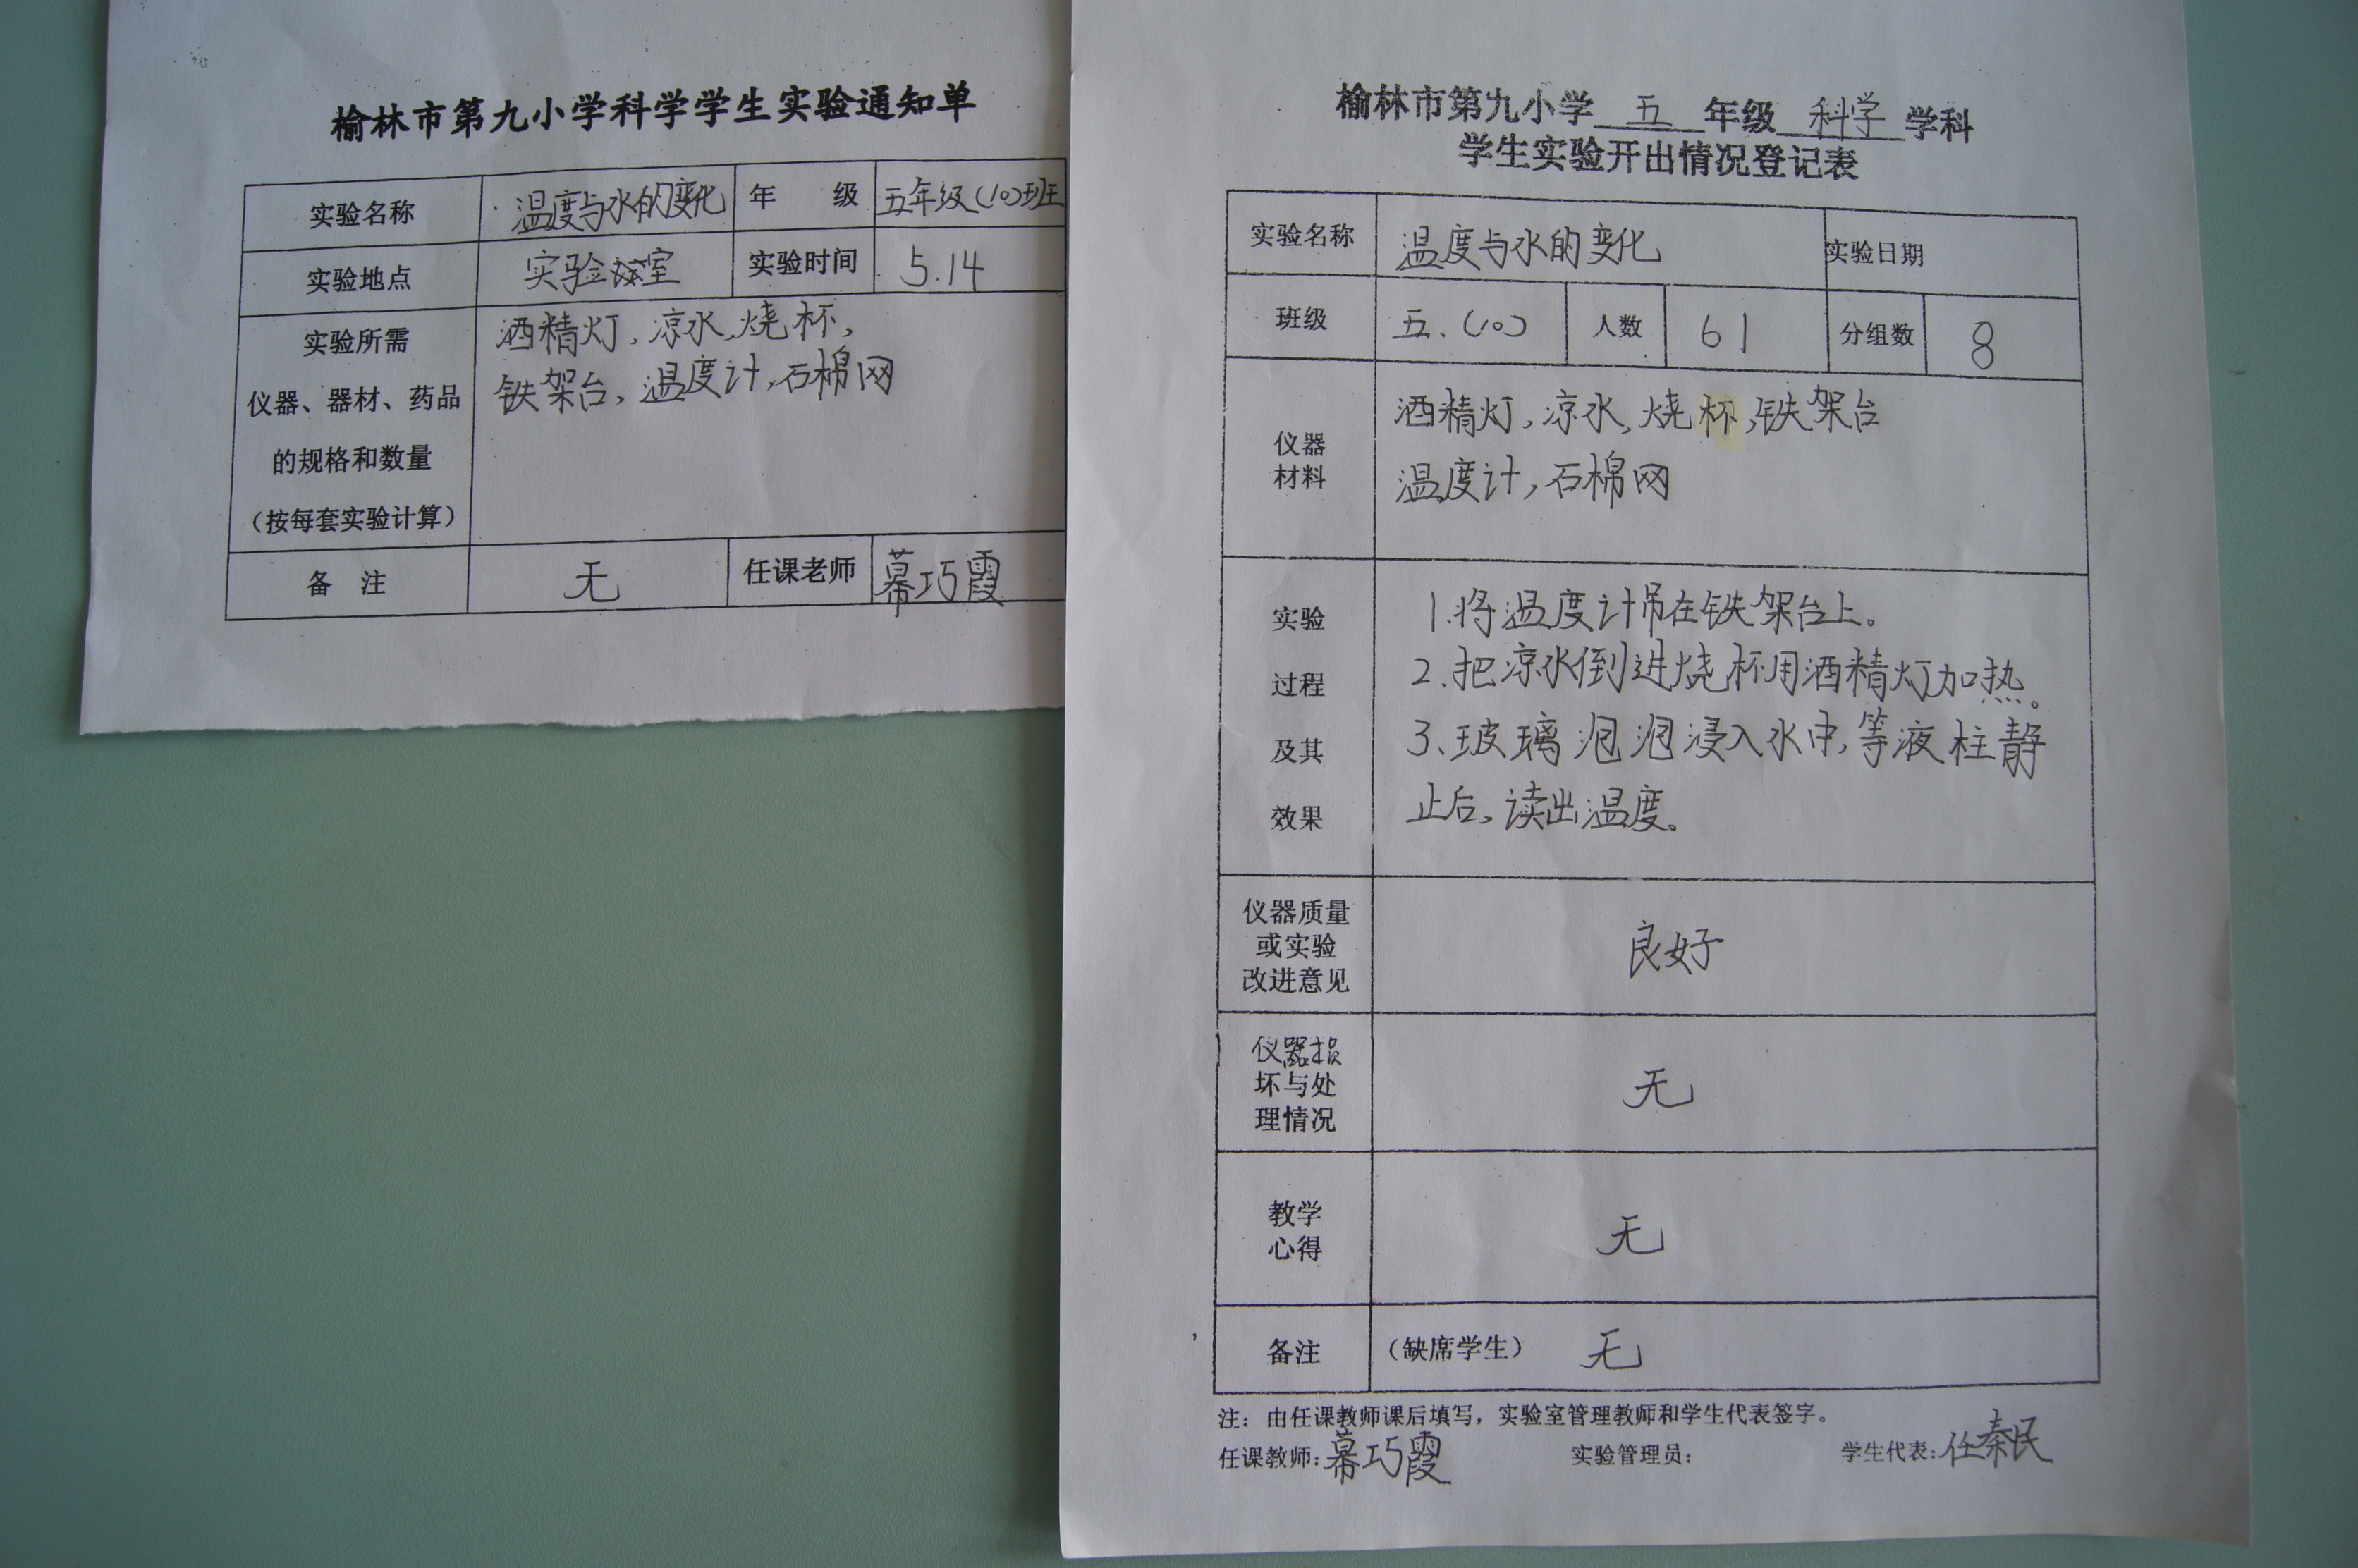 榆林市第九小学科学学生实验通知单
实验名称 温度与水的变化 年 级 五年级(10)班
实验地点 实验室 实验时间 5.14
实验所需
仪器、器材、药品
的规格和数量
（按每套实验计算）
酒精灯,凉水,烧杯,
铁架台,温度计,石棉网
备 注 无 任课老师 幕巧霞
榆林市第九小学 五 年级 科学 学科
学生实验开出情况登记表
实验名称 温度与水的变化 实验日期
班级 五.(10) 人数 61 分组数 8
仪器
材料
酒精灯,凉水,烧杯,铁架台
温度计,石棉网
实验
过程
及其
效果
1.将温度计吊在铁架台上。
2.把凉水倒进烧杯用酒精灯加热。
3、玻璃泡泡浸入水中,等液柱静
止后,读出温度。
仪器质量
或实验
改进意见
良好
仪器损
坏与处
理情况
无
教学
心得
无
备注 （缺席学生） 无
注：由任课教师课后填写，实验室管理教师和学生代表签字。
任课教师:幕巧霞 实验管理员: 学生代表:任秦民